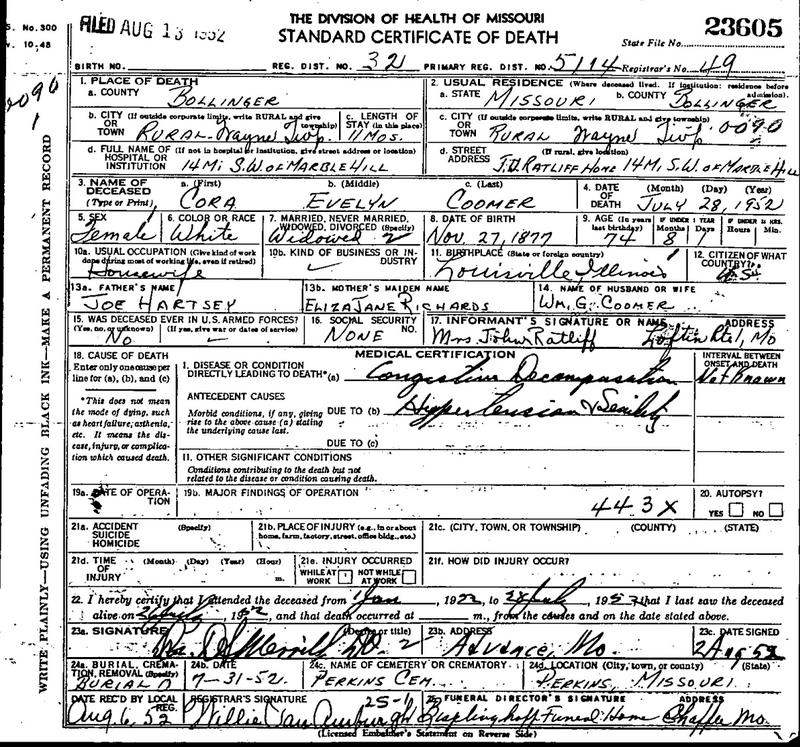 S. No.300
v. 10-48
FILED AUG 13 1952
THE DIVISION OF HEALTH OF MISSOURI
STANDARD CERTIFICATE OF DEATH
23605
State File No.
BIRTH NO. REG. DIST. NO. 32 PRIMARY REG. DIST. NO. 5114 Registrar's No. 49
1. PLACE OF DEATH
a. COUNTY BOLLINGER
2. USUAL RESIDENCE (Where deceased lived. If institution: residence before admission).
a. STATE MISSOURI b. COUNTY BOLLINGER
b. CITY (If outside corporate limits, write RURAL and give township) OR TOWN RURAL-Wayne Twp.
c. LENGTH OF STAY (in this place) 11 MOS.
c. CITY (If outside corporate limits, write RURAL and give township) OR TOWN RURAL Wayne Twp. 0090
d. FULL NAME OF (If not in hospital or institution, give street address or location) HOSPITAL OR INSTITUTION 14 Mi S.W. OF MARBLE HILL
d. STREET (If rural, give location) ADDRESS J.D. RATLIFF HOME 14 Mi. S.W. OF MARBLE HILL
3. NAME OF DECEASED (Type or Print)
a. (First) CORA
b. (Middle) EVELYN
c. (Last) COOMER
4. DATE OF DEATH (Month) (Day) (Year) JULY 28, 1952
5. SEX Female
6. COLOR OR RACE White
7. MARRIED, NEVER MARRIED, WIDOWED, DIVORCED (Specify) Widowed 2
8. DATE OF BIRTH Nov. 27, 1877
9. AGE (In years last birthday) 74 IF UNDER 1 YEAR Months 8 Days 1 IF UNDER 24 HRS. Hours Min.
10a. USUAL OCCUPATION (Give kind of work done during most of working life, even if retired) Housewife
10b. KIND OF BUSINESS OR INDUSTRY
11. BIRTHPLACE (State or foreign country) Louisville Illinois
12. CITIZEN OF WHAT COUNTRY? U.S.
13a. FATHER'S NAME JOE HARTSEY
13b. MOTHER'S MAIDEN NAME ELIZA JANE RICHARDS
14. NAME OF HUSBAND OR WIFE WM. G. COOMER
15. WAS DECEASED EVER IN U.S. ARMED FORCES? (Yes, no, or unknown) (If yes, give war or dates of service) No
16. SOCIAL SECURITY NO. NONE
17. INFORMANT'S SIGNATURE OR NAME ADDRESS
Mrs. John Ratliff Mo
18. CAUSE OF DEATH
Enter only one cause per line for (a), (b), and (c)
*This does not mean the mode of dying, such as heart failure, asthenia, etc. It means the disease, injury, or complication which caused death.
MEDICAL CERTIFICATION
INTERVAL BETWEEN ONSET AND DEATH
1. DISEASE OR CONDITION DIRECTLY LEADING TO DEATH*(a) Congestive Decompensation Not Known
ANTECEDENT CAUSES
Morbid conditions, if any, giving rise to the above cause (a) stating the underlying cause last.
DUE TO (b) Hypertension & Senility
DUE TO (c)
11. OTHER SIGNIFICANT CONDITIONS
Conditions contributing to the death but not related to the disease or condition causing death.
19a. DATE OF OPERATION
19b. MAJOR FINDINGS OF OPERATION
443X
20. AUTOPSY? YES NO
21a. ACCIDENT SUICIDE HOMICIDE (Specify)
21b. PLACE OF INJURY (e.g., in or about home, farm, factory, street, office bldg., etc.)
21c. (CITY, TOWN, OR TOWNSHIP) (COUNTY) (STATE)
21d. TIME OF INJURY (Month) (Day) (Year) (Hour) m.
21e. INJURY OCCURRED WHILE AT WORK NOT WHILE AT WORK
21f. HOW DID INJURY OCCUR?
22. I hereby certify that I attended the deceased from 1 Jan, 1952, to 28 July, 1952, that I last saw the deceased
alive on July, 1952, and that death occurred at m., from the causes and on the date stated above.
23a. SIGNATURE (Degree or title) Merrill
23b. ADDRESS Advance, Mo.
23c. DATE SIGNED 2 Aug 52
24a. BURIAL, CREMATION, REMOVAL (Specify) BURIAL
24b. DATE 7-31-52.
24c. NAME OF CEMETERY OR CREMATORY PERKINS CEM.
24d. LOCATION (City, town, or county) (State) PERKINS, MISSOURI.
DATE REC'D BY LOCAL REG. Aug 6, 52
REGISTRAR'S SIGNATURE Willie Van Amburgh
25. FUNERAL DIRECTOR'S SIGNATURE ADDRESS
Bisplinghoff Funeral Home Chaffee Mo.
(Licensed Embalmer's Statement on Reverse Side)
WRITE PLAINLY—USING UNFADING BLACK INK—MAKE A PERMANENT RECORD